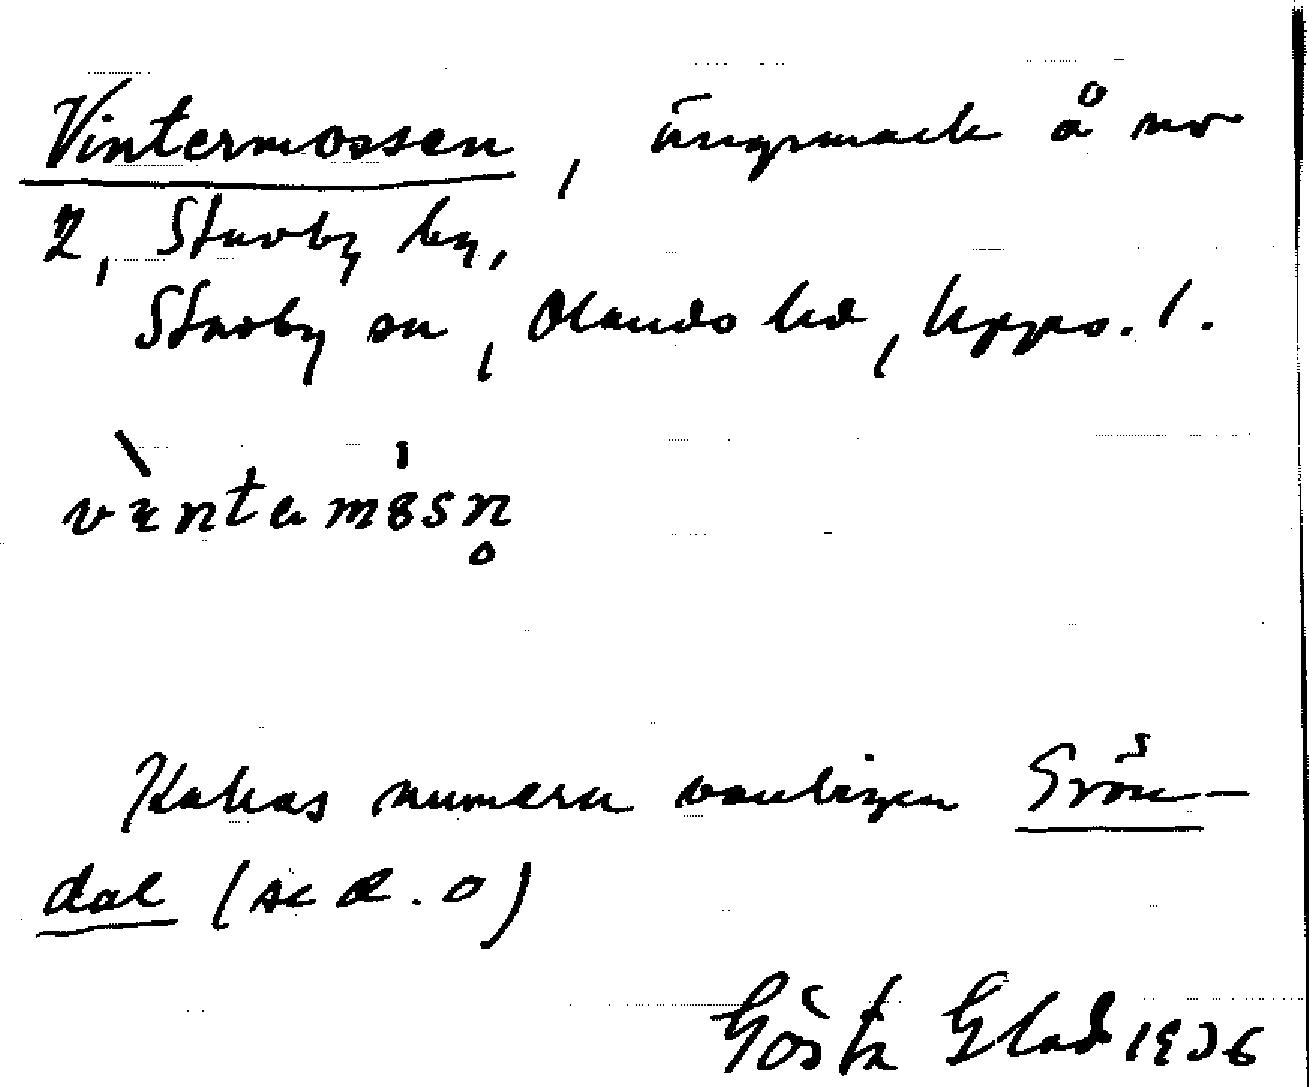 Vintermossen, ängsmark å nr
2, Stavby by,
Stavby sn, Olands hd, Upps. l.
vìntamɞ́sn̥
Kallas numera vanligen Grön-
dal (se d. o)
Gösta Glad 1936